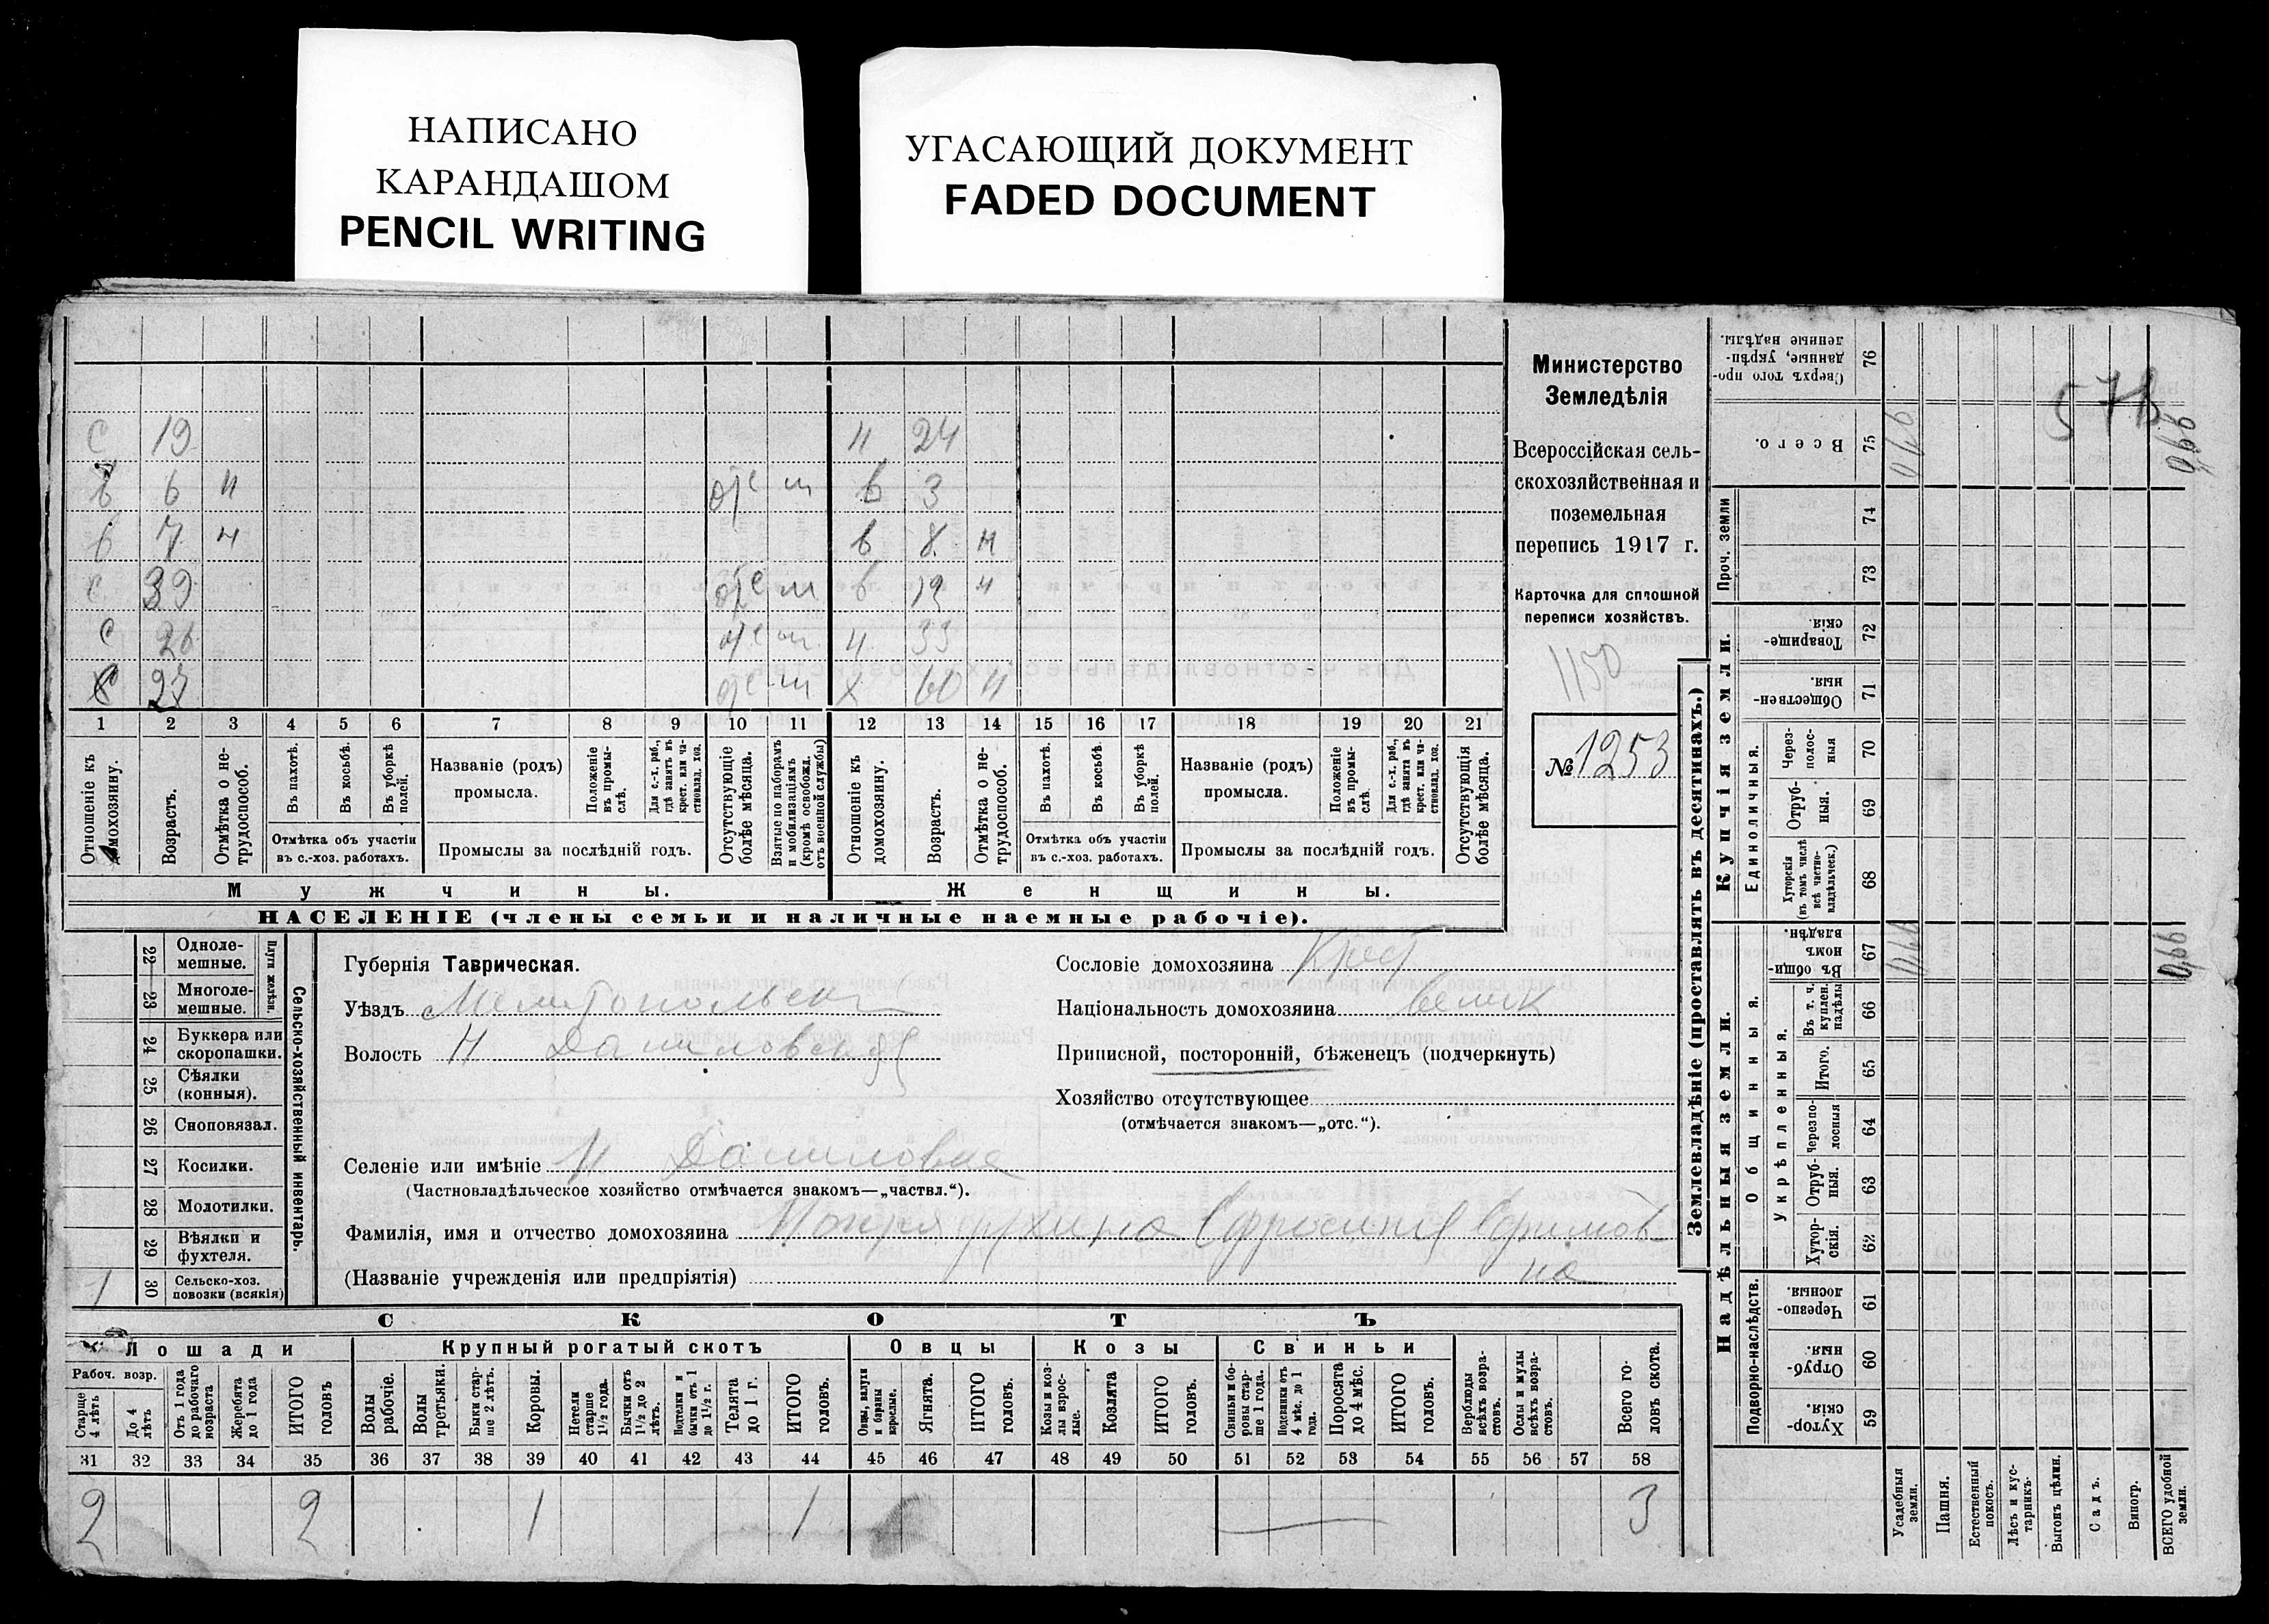 НАПИСАНО
КАРАНДАШОМ
PENCIL WRITING
УГАСАЮЩИЙ ДОКУМЕНТ
FADED DOCUMENT
с 19 н 24
6 н отс м в 3
7 н в 8 н
с 39 отс м в 12 н
с 26 отс м н 33
с 27 отс м х 60 н
1 2 3 4 5 6 7 8 9 10 11 12 13 14 15 16 17 18 19 20 21
Отношеніе къ домохозяину.
Возрастъ.
Отмѣтка о не-трудоспособ.
Въ пахотѣ.
Въ косьбѣ.
Въ уборкѣ полей.
Отмѣтка объ участіи
въ с.-хоз. работахъ.
Названіе (родъ)
промысла.
Положеніе въ промы-слѣ.
Для с.-х. раб., гдѣ занятъ въ крест. или ча-стновлад. хоз.
Промыслы за послѣдній годъ.
Отсутствующіе болѣе мѣсяца.
Взятые по наборамъ и мобилизаціямъ (кромѣ освобожд. отъ военной службы)
Отношеніе къ домохозяину.
Возрастъ.
Отмѣтка о не-трудоспособ.
Въ пахотѣ.
Въ косьбѣ.
Въ уборкѣ полей.
Отмѣтка объ участіи
въ с.-хоз. работахъ.
Названіе (родъ)
промысла.
Положеніе въ промы-слѣ.
Для с.-х. раб., гдѣ занята въ крест. или ча-стновлад. хоз.
Промыслы за послѣдній годъ.
Отсутствующія болѣе мѣсяца.
Мужчины.
Женщины.
НАСЕЛЕНІЕ (члены семьи и наличные наемные рабочіе).
Министерство
Земледѣлія
Всероссійская сель-
скохозяйственная и
поземельная
перепись 1917 г.
Карточка для сплошной
переписи хозяйствъ.
1150
№ 1253
22 Одноле-мешные.
23 Многоле-мешные.
Плуги желѣзн.
24 Буккера или скоропашки.
25 Сѣялки (конныя).
26 Сноповязал.
27 Косилки.
28 Молотилки.
29 Вѣялки и фухтеля.
1 30 Сельско-хоз. повозки (всякія)
Сельско-хозяйственный инвентарь.
Губернія Таврическая.
Уѣздъ Мелитопольск
Волость Н Даниловская
Селеніе или имѣніе Н Даниловка
(Частновладѣльческое хозяйство отмѣчается знакомъ—„частвл.“).
Фамилія, имя и отчество домохозяина Ефросинія Ефимов
на
(Названіе учрежденія или предпріятія)
Сословіе домохозяина Крест
Національность домохозяина велик
Приписной, посторонній, бѣженецъ (подчеркнуть)
Хозяйство отсутствующее
(отмѣчается знакомъ—„отс.“).
СКОТЪ
Лошади
Крупный рогатый скотъ
Овцы
Козы
Свиньи
Рабоч. возр.
Старше 4 лѣтъ
До 4 лѣтъ
Отъ 1 года до рабочаго возраста
Жеребята до 1 года
ИТОГО головъ
Волы рабочіе.
Волы третьяки.
Быки стар-ше 2 лѣтъ.
Коровы.
Нетели старше 1½ года.
Бычки отъ 1½ до 2 лѣтъ.
Подтелки и бычки отъ 1 до 1½ г.
Телята до 1 г.
ИТОГО головъ.
Овцы, валухи и бараны взрослые.
Ягнята.
ИТОГО головъ.
Козы и коз-лы взрос-лые.
Козлята
ИТОГО головъ.
Свиньи и бо-ровы стар-ше 1 года.
Подсвинки отъ 4 мѣс. до 1 года.
Поросята до 4 мѣс.
ИТОГО головъ.
Верблюды всѣхъ возра-стовъ.
Ослы и мулы всѣхъ возра-стовъ.
Всего го-ловъ скота.
31 32 33 34 35 36 37 38 39 40 41 42 43 44 45 46 47 48 49 50 51 52 53 54 55 56 57 58
2 2 1 1 3
Землевладѣніе (проставлять въ десятинахъ.)
Купчія земли.
Надѣльныя земли.
Проч. земли
Единоличныя.
Общинныя.
Укрѣпленныя.
Подворно-наслѣдств.
Сверхъ того про-данные, укрѣп-ленные надѣлы. 76
Всего. 75
74
73
Товарище-скія. 72
Обществен-ныя. 71
Через-полос-ныя 70
Отруб-ныя. 69
Хуторскія (въ томъ числѣ всѣ частно-владѣльческ.) 68
Въ общи-номъ владѣн. 67
Въ т. ч. куплен. надѣлы 66
Итого. 65
Черезпо-лосныя 64
Отруб-ныя. 63
Хутор-скія. 62
Черезпо-лосныя. 61
Отруб-ныя. 60
Хутор-скія. 59
Усадебныя земли.
Пашня.
Естественный покосъ.
Лѣсъ и кус-тарникъ.
Выгонъ цѣлин.
Садъ.
Виногр.
ВСЕГО удобной земли.